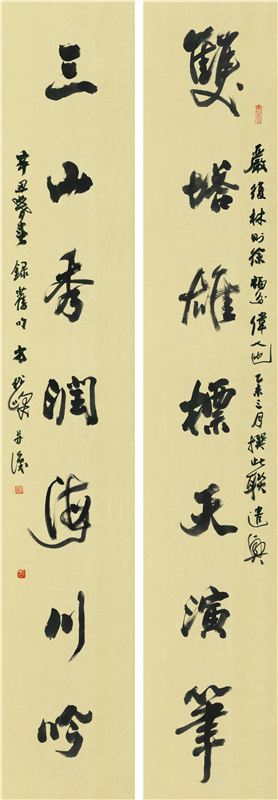 嚴復林則徐福州偉人也乙未三月撰此聯遣興
雙塔雄標天演筆
三山秀潤海川吟
辛丑 錄舊